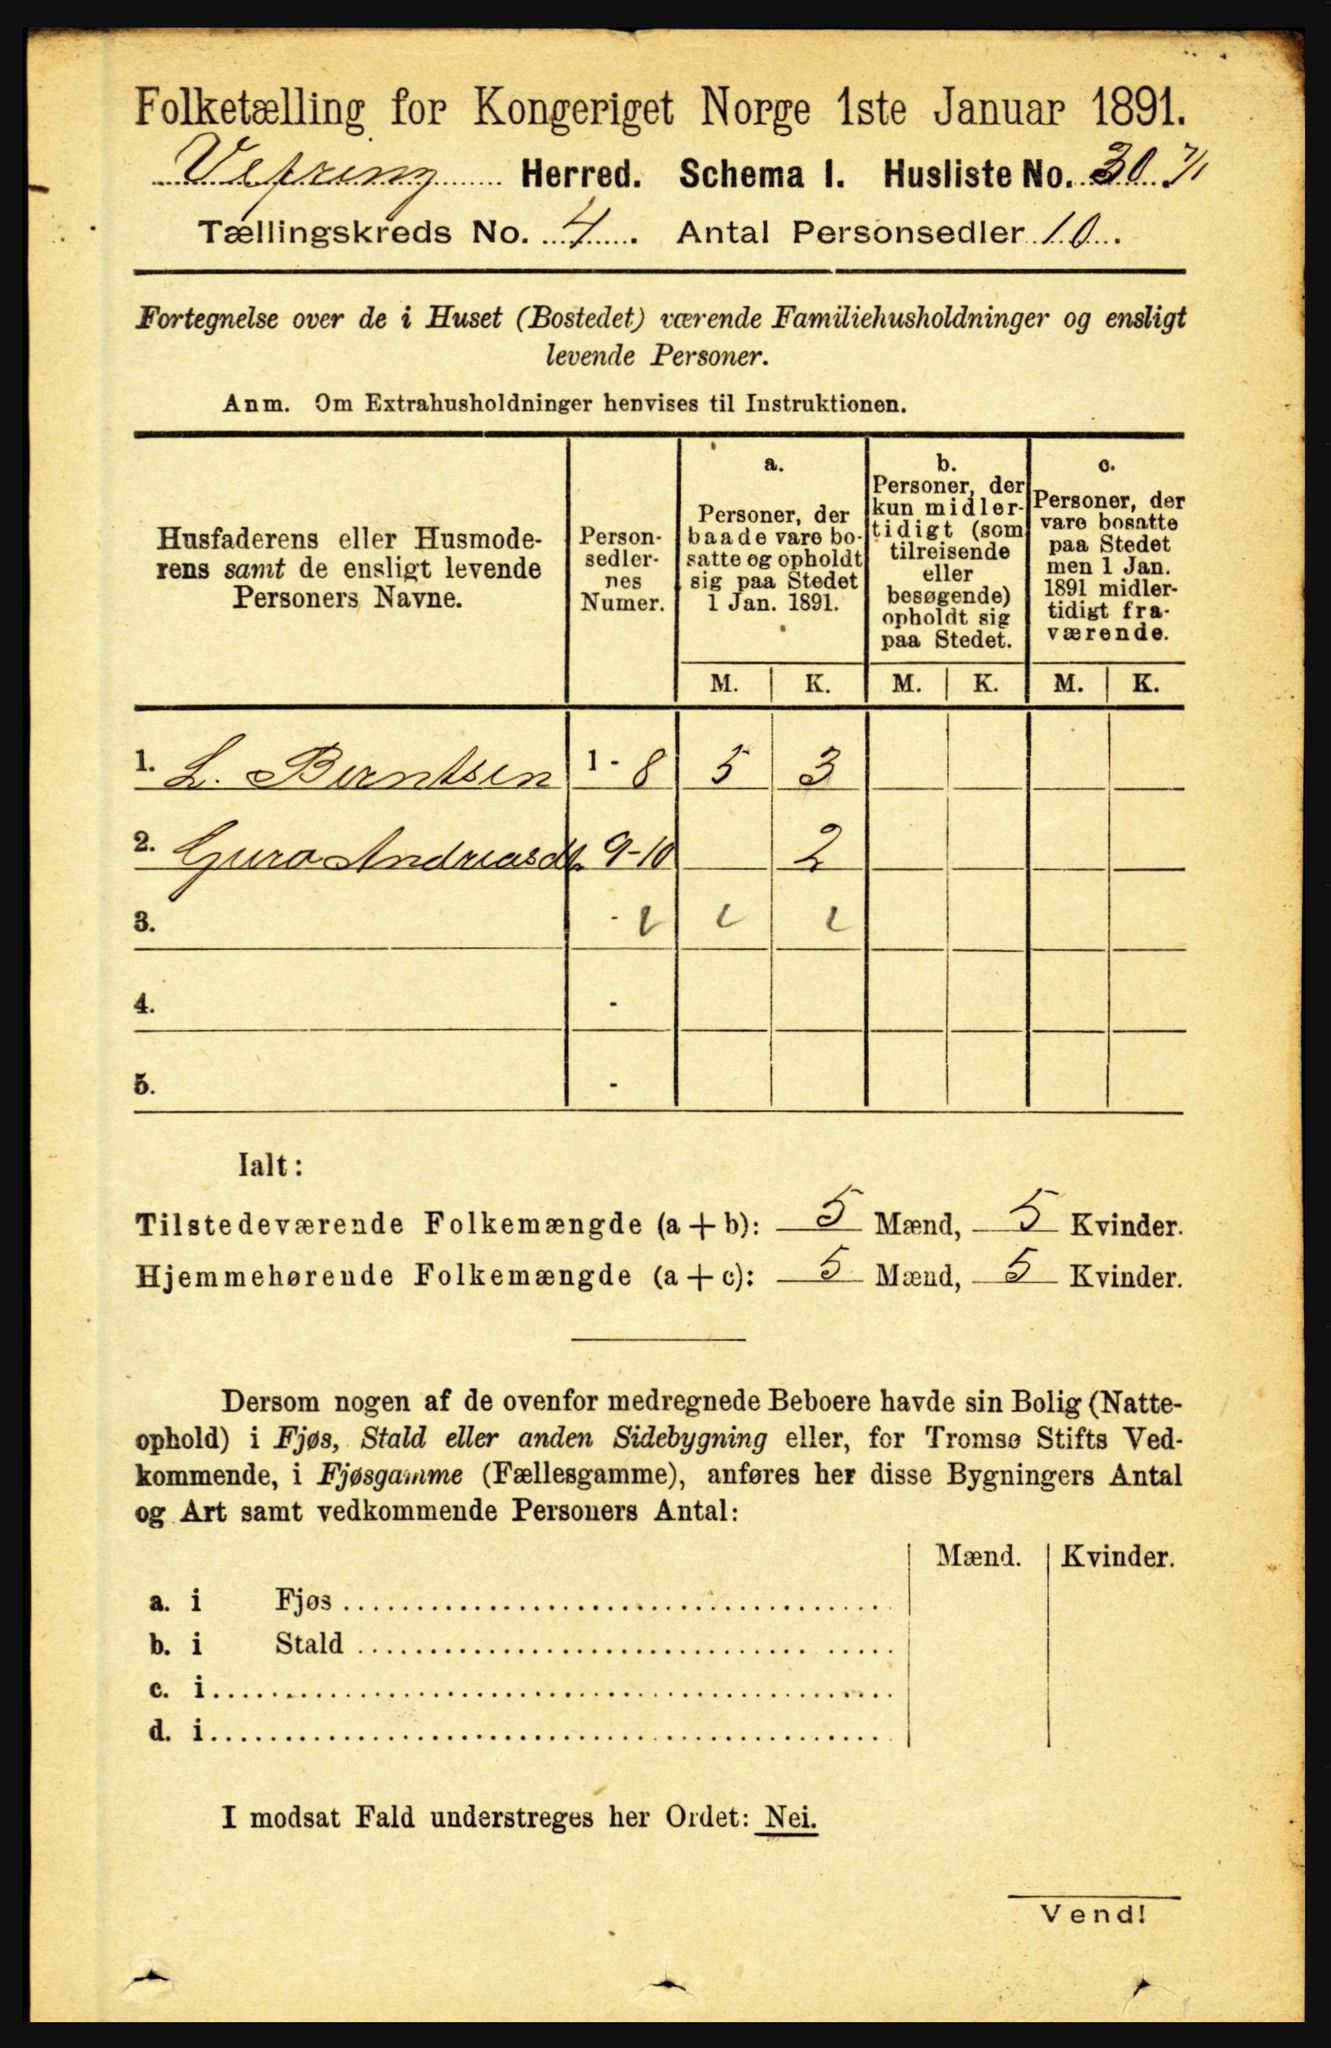 Folketælling for Kongeriget Norge 1ste Januar 1891.
Vefring Herred. Schema I. Husliste No. 30
Tællingskreds No. 4. Antal Personsedler 10.
Fortegnelse over de i Huset (Bostedet) værende Familiehusholdninger og ensligt
levende Personer.
Anm. Om Extrahusholdninger henvises til Instruktionen.
Husfaderens eller Husmode-
rens samt de ensligt levende
Personers Navne.
Person-
sedler-
nes
Numer.
a.
Personer, der
baade vare bo-
satte og opholdt
sig paa Stedet
1 Jan. 1891.
b.
Personer, der
kun midler-
tidigt (som
tilreisende
eller
besøgende)
opholdt sig
paa Stedet.
c.
Personer, der
vare bosatte
paa Stedet
men 1 Jan.
1891 midler-
tidigt fra-
værende.
M. K. M. K. M. K.
1. L. Berntsen 1 - 8 5 3
2. Guro Andreasdt. 9-10 2
3. -
4. -
5. -
Ialt:
Tilstedeværende Folkemængde (a + b): 5 Mænd, 5 Kvinder.
Hjemmehørende Folkemængde (a + c): 5 Mænd, 5 Kvinder.
Dersom nogen af de ovenfor medregnede Beboere havde sin Bolig (Natte-
ophold) i Fjøs, Stald eller anden Sidebygning eller, for Tromsø Stifts Ved-
kommende, i Fjøsgamme (Fællesgamme), anføres her disse Bygningers Antal
og Art samt vedkommende Personers Antal:
Mænd. Kvinder.
a. i Fjøs
b. i Stald
c. i
d. i
I modsat Fald understreges her Ordet: Nei.
Vend!